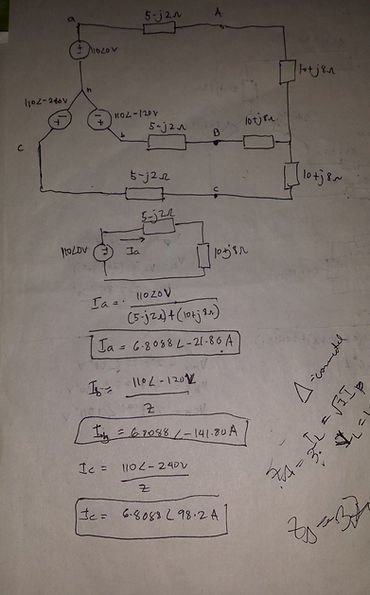 a
5-j2Ω
A
110∠0V
10+j8Ω
n
110∠-240V
110∠-120V
b
5-j2Ω
B
10+j8Ω
C
10+j8Ω
5-j2Ω
c
5-j2Ω
110∠0V
Ia
10+j8Ω
Ia = 110∠0V
(5-j2Ω)+(10+j8Ω)
Ia = 6.8088∠-21.80 A
Ib = 110∠-120V
Z
Ib = 6.8088∠-141.80 A
Ic = 110∠-240V
Z
Ic = 6.8088∠98.2 A
Δ-connected
IL = √3 Ip